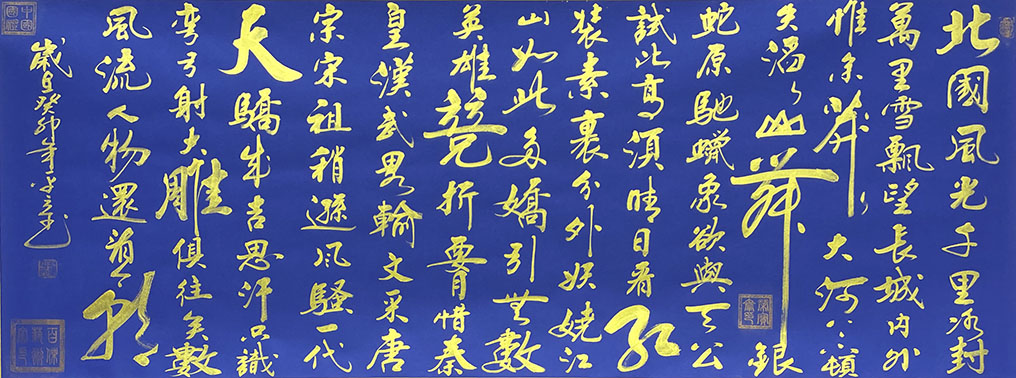 北國風光千里冰封
萬里雪飄望長城內外
惟余莽〻大河上下頓
失滔〻山舞銀
蛇原馳蠟象欲與天公
試比高須晴日看紅
裝素裹分外妖嬈江
山如此多嬌引無數
英雄競折腰惜秦
皇漢武畧輸文采唐
宗宋祖稍遜風騷一代
天驕成吉思汗只識
彎弓射大雕俱往矣數
風流人物還看今朝
歲在癸卯年